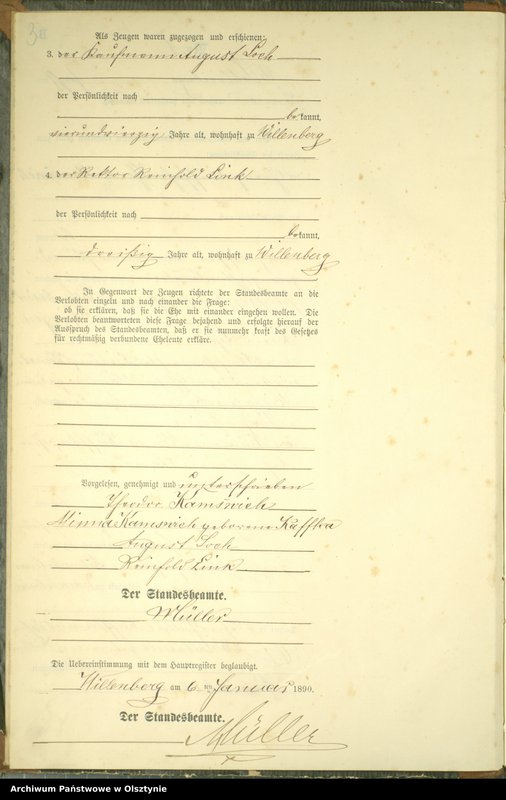 Als Zeugen waren zugezogen und erschienen:
3. der Kaufmann August Loch
der Persönlichkeit nach
bekannt,
vierundvierzig Jahre alt, wohnhaft zu Willenberg
4. der Rektor Reinhold Link
der Persönlichkeit nach
bekannt,
dreißig Jahre alt, wohnhaft zu Willenberg
In Gegenwart der Zeugen richtete der Standesbeamte an die
Verlobten einzeln und nach einander die Frage:
ob sie erklären, daß sie die Ehe mit einander eingehen wollen. Die
Verlobten beantworteten diese Frage bejahend und erfolgte hierauf der
Ausspruch des Standesbeamten, daß er sie nunmehr kraft des Gesetzes
für rechtmäßig verbundene Eheleute erkläre.
Vorgelesen, genehmigt und unterschrieben
Theodor Kamswich
Minna Kamswich geborene Kaffka
August Loch
Reinhold Link
Der Standesbeamte.
Müller
Die Uebereinstimmung mit dem Hauptregister beglaubigt.
Willenberg am 6 ten Januar 1890.
Der Standesbeamte.
Müller
Archiwum Państwowe w Olsztynie